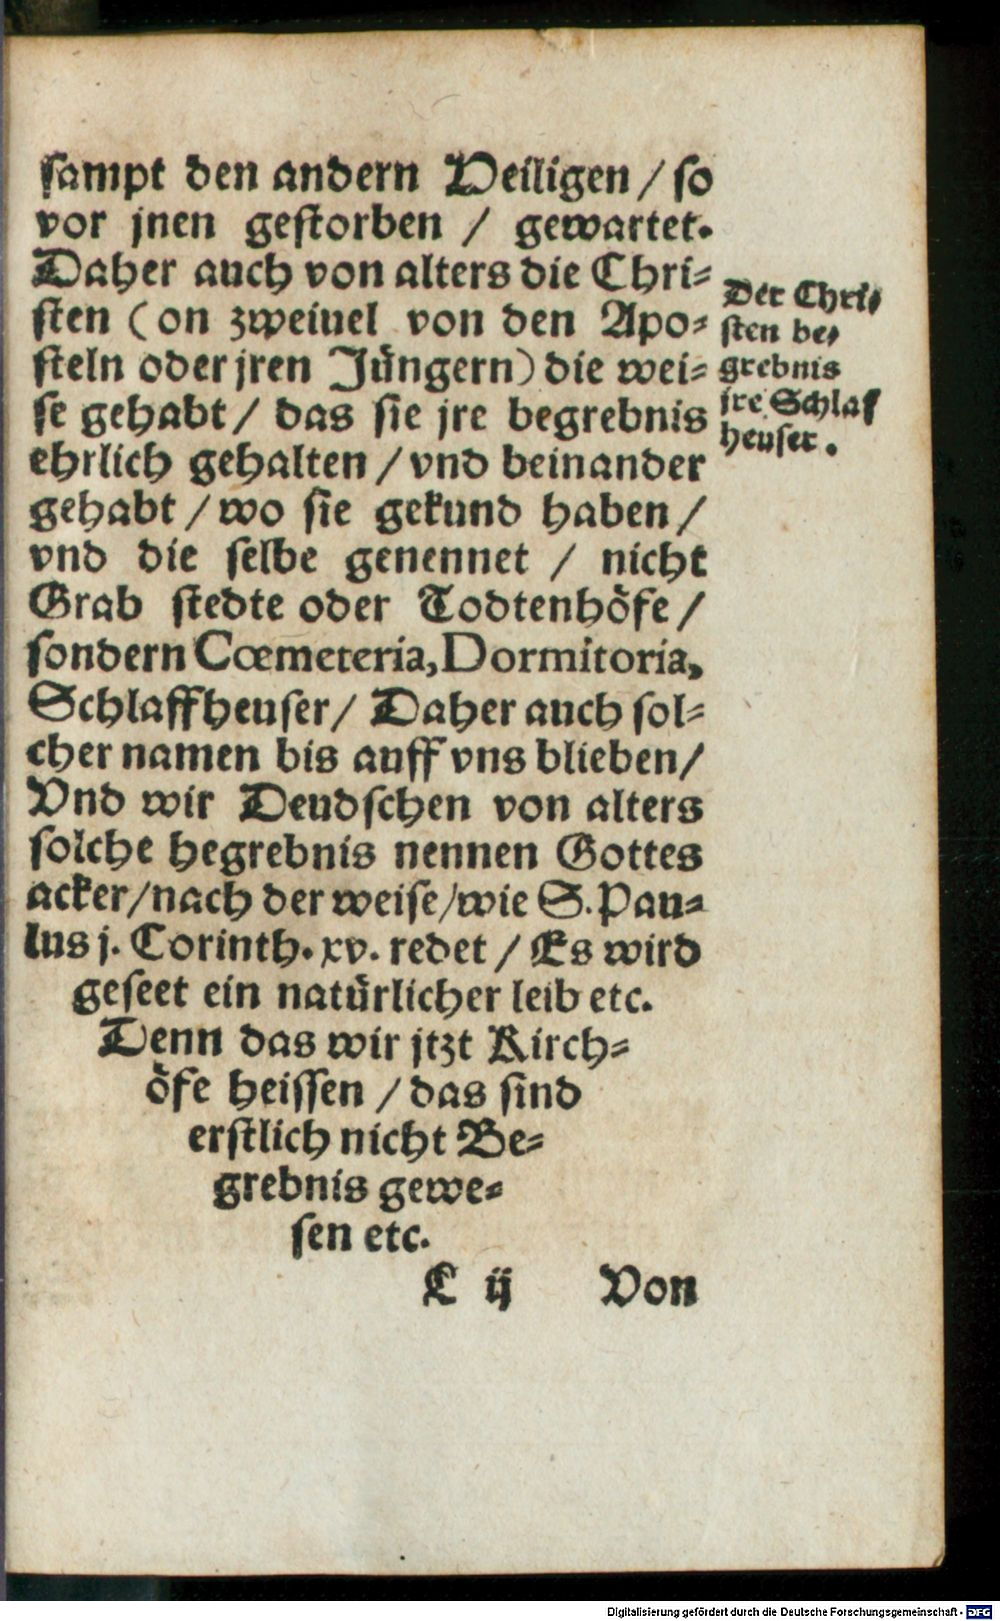 sampt den andern Veiligen / so
vor jnen gestorben / gewartet.
Daher auch von alters die Chri⸗
sten (on zweiuel von den Apo⸗
steln oder jren Jüngern) die wei⸗
se gehabt / das sie jre begrebnis
ehrlich gehalten / vnd beinander
gehabt / wo sie gekund haben /
vnd die selbe genennet / nicht
Grab stedte oder Todtenhöfe /
sondern Cœmeteria, Dormitoria,
Schlaffheuser / Daher auch sol⸗
cher namen bis auff vns blieben /
Vnd wir Deudschen von alters
solche hegrebnis nennen Gottes
acker / nach der weise / wie S. Pau⸗
lus j. Corinth. xv. redet / Es wird
geseet ein natürlicher leib etc.
Denn das wir jtzt Kirch⸗
öfe heissen / das sind
erstlich nicht Be⸗
grebnis gewe⸗
sen etc.
C ij Von
Der Chri⸗
sten be⸗
grebnis
jre Schlaf
heuser.
Digitalisierung gefördert durch die Deutsche Forschungsgemeinschaft - DFG